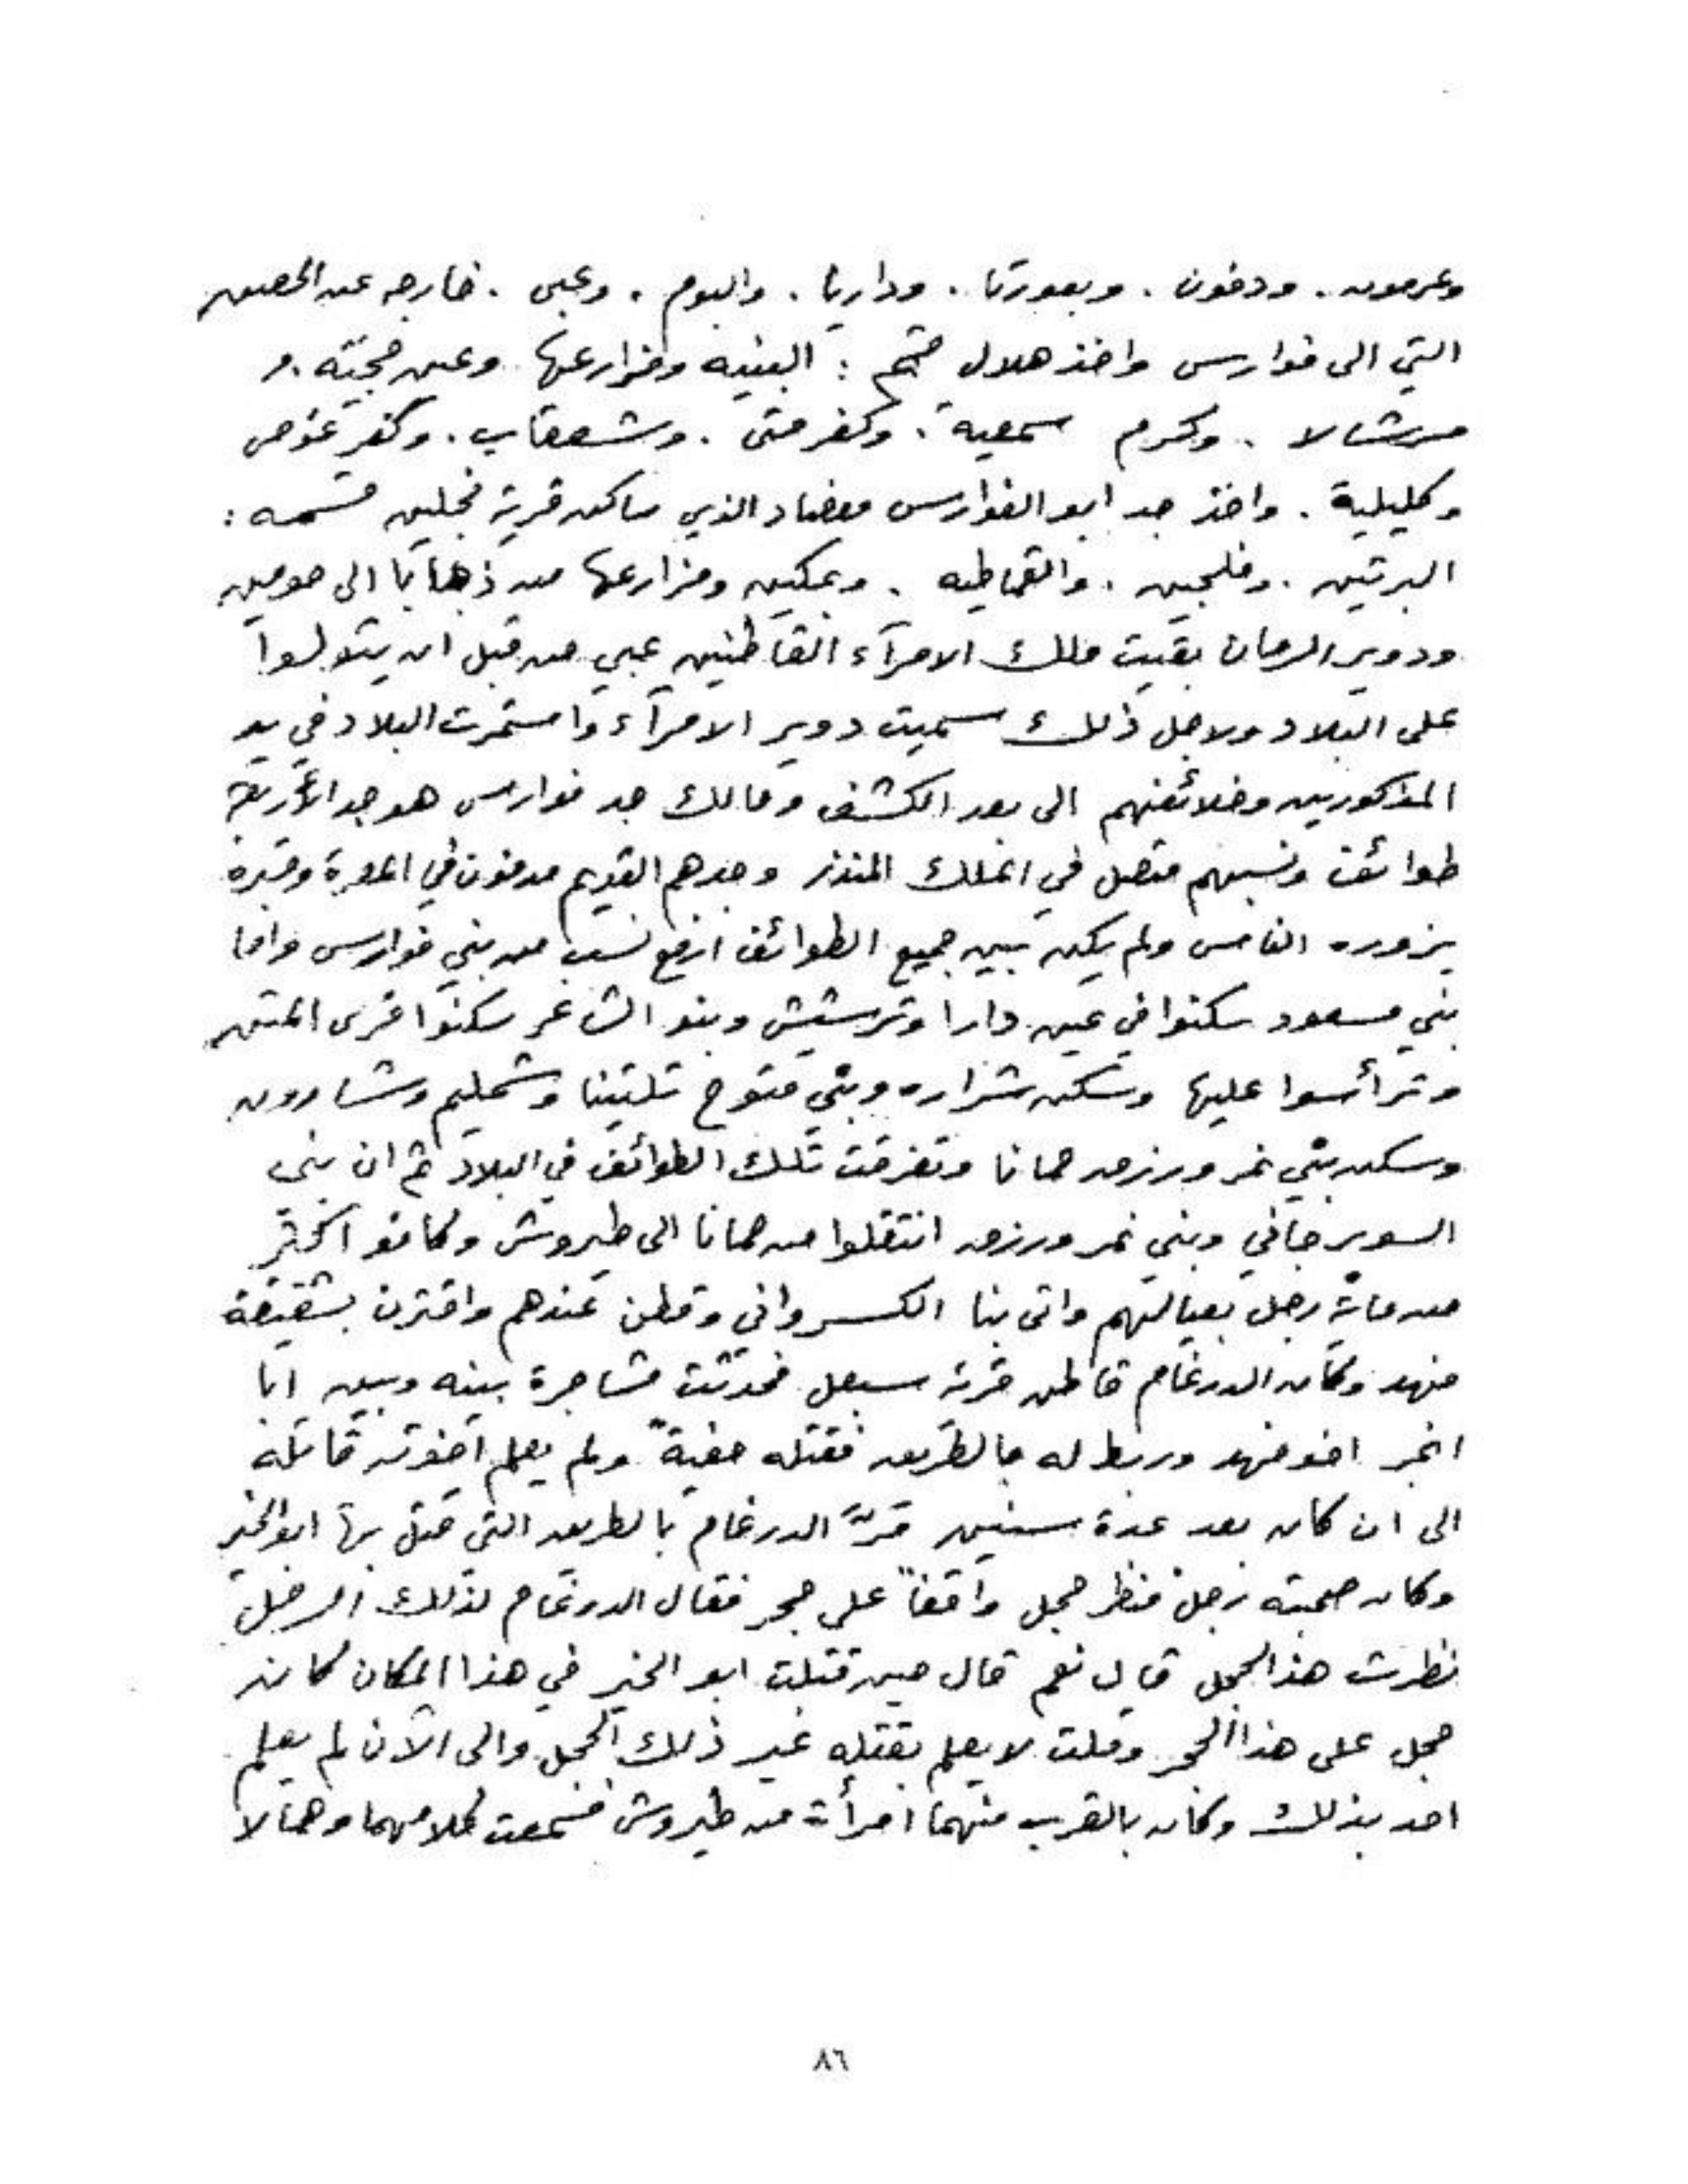 وعرمون . ودفون . وبعورتا . وداريا . والبوم . وعبى . خارجه عن الحصين
التي الى فوارس واخذ هلال قسم : البنيه ومزارعها وعين مجبّه . و
مرشالا . وكرم سمعية . وكفرمتى . وشعقاب . وكفر عّوص
وكليلية . واخذ جد ابو الفوارس معضاد الذي ساكن قرية فلجين قسمه :
البرتين . وفلجين . والقماطيه . وبمكين ومزارعها من ذهابا الى صوفين
ودوير الرمان بقيت ملك الامرآء القاطنين عبي من قبل ان يتولوا
على البلاد ولاجل ذلك سميت دوير الامرآء واستمرت البلاد في يد
المذكورين وخلائفهم الى بعد الكشف ومالك جد فوارس هو جد الأربعة
طوائف ونسبهم متصل في الملك المنذر وجدهم القديم مدفون في المعرة وقبره
يزوره الناس ولم يكن بين جميع الطوائف ارفع نسب من بني فوارس واما
بني مسعود سكنوا في عين دارا وترشيش وبنو الشاعر سكنوا قرى المتين
وترأسوا عليها وسكن شراره وبني فتوح تلتيتا وشمليم وشارون
وسكن بني نمر ورزق حمانا وتفرقت تلك الطوائف في البلاد ثم ان بني
السويرجاني وبني نمر ورزق انتقلوا من حمانا الى طيروش وكانو اكثر
من ماية رجل بعيالتهم واتى بنا الكسرواني وقطن عندهم واقترن بشقيقة
فهد وكان الدرغام قاطن قرية سبعل فحدثت مشاجرة بينه وبين ابا
الخير اخو فهد وربط له بالطريق فقتله خفيةً ولم يعلم اخوته قاتله
الى ان كان بعد عدة سنين مّر الدرغام بالطريق التي قتل بها ابو الخير
وكان صحبته رجل فنظر حجل واقفاً على حجر فقال الدرغام لذلك الرجل
نظرت هذا الحجل قال نعم قال حين قتلت ابو الخير في هذا المكان كان
حجل على هذا الحجر وقلت لا يعلم بقتله غير ذلك الحجل والى الآن لم يعلم
احد بذلك وكان بالقرب منهما امرأة من طيروش فسمعت كلامهما وهما لا
٨٦